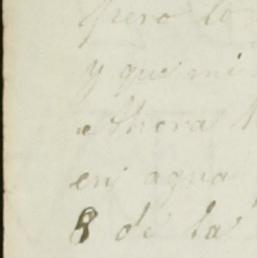 pero lo
y que mi
Ahora
en agua
8 de la